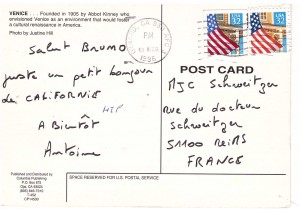 VENICE . . . Founded in 1905 by Abbot Kinney who
envisioned Venice as an environment that would foster
a cultural renaissance in America.
Photo by Justine Hill
Salut Bruno
juste un petit bonjour
de CALIFORNIE
A Bientôt
Antoine
PM
1996
POST CARD
MJC Schweitzer
rue du docteur
Schweitzer
51100 REIMS
FRANCE
Published and Distributed by
Columbia Publishing
SPACE RESERVED FOR U.S. POSTAL SERVICE